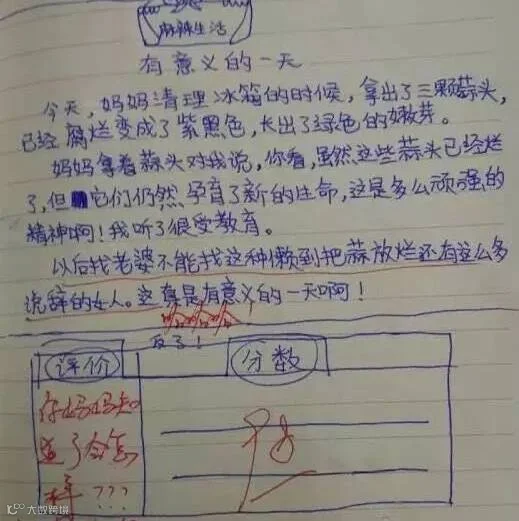 麻辣生活
有意义的一天
今天，妈妈清理冰箱的时候，拿出了三颗蒜头，
已经腐烂变成了紫黑色，长出了绿色的嫩芽。
妈妈拿着蒜头对我说，你看，虽然这些蒜头已经烂
了，但它们仍然孕育了新的生命，这是多么顽强的
精神啊！我听了很受教育。
以后找老婆不能找这种懒到把蒜放烂还有这么多
说辞的女人。这真是有意义的一天啊！
哈哈哈
评价
分数
你妈妈知
道了会怎
样？？？
大数跨境